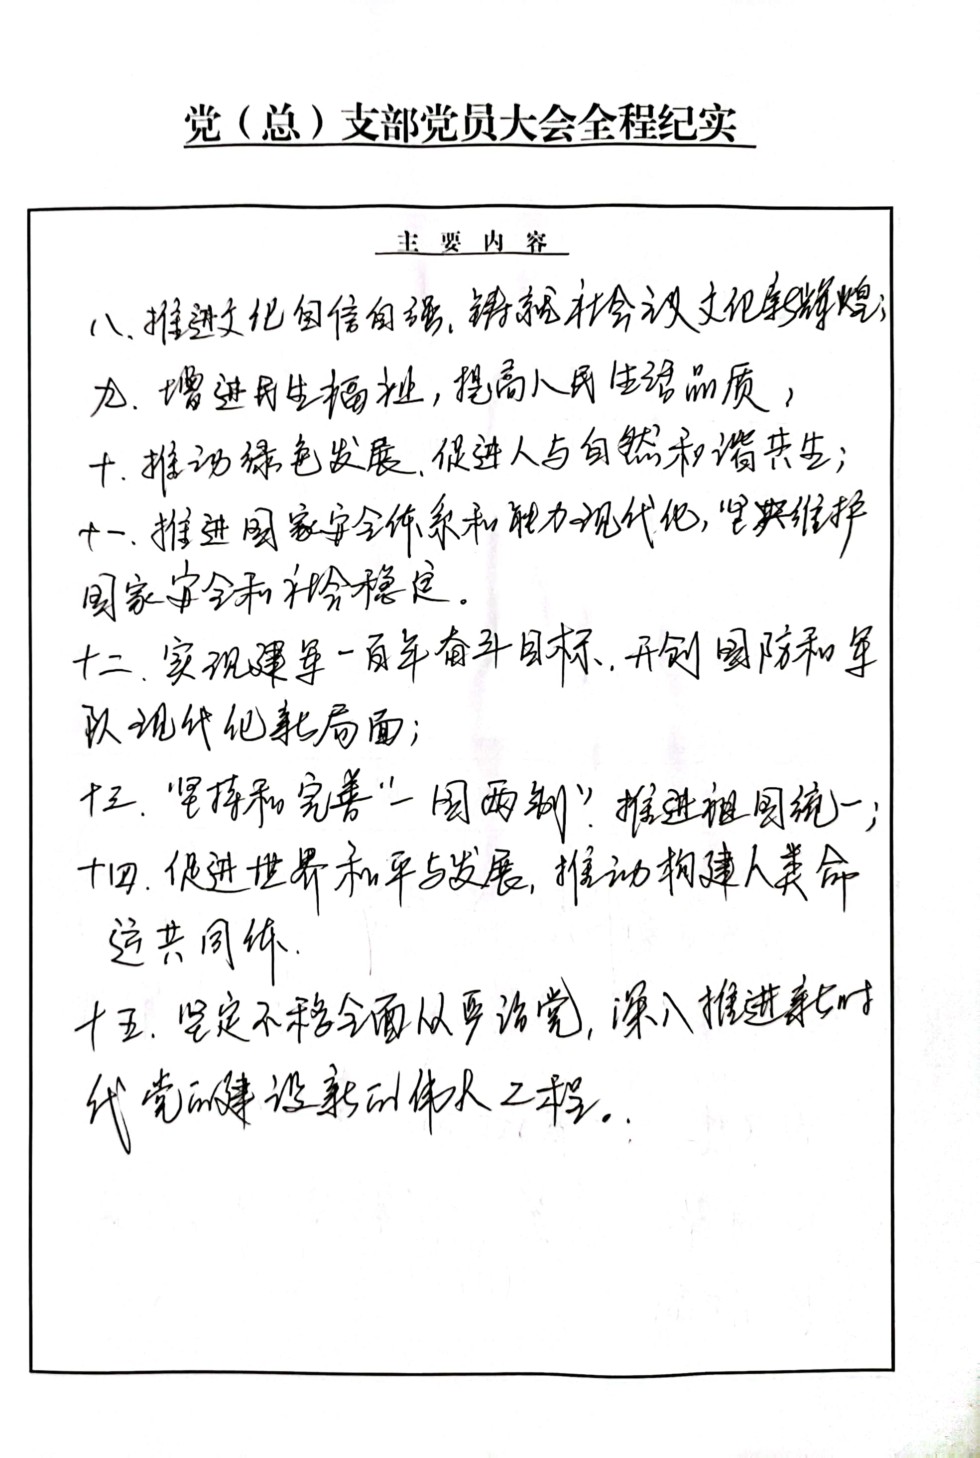 党（总）支部党员大会全程纪实
主要内容
八、推进文化自信自强、铸就社会主义文化新辉煌；
九、增进民生福祉，提高人民生活品质，
十、推动绿色发展、促进人与自然和谐共生；
十一、推进国家安全体系和能力现代化，坚决维护
国家安全和社会稳定。
十二、实现建军一百年奋斗目标、开创国防和军
队现代化新局面；
十三、坚持和完善“一国两制”，推进祖国统一；
十四、促进世界和平与发展，推动构建人类命
运共同体.
十五、坚定不移全面从严治党，深入推进新时
代党的建设新的伟大工程。